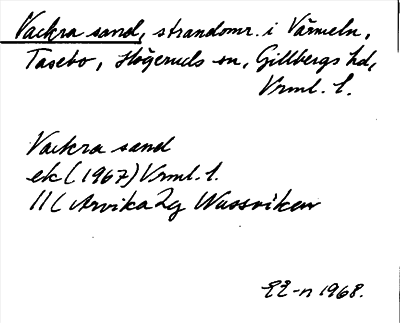 Vackra sand, strandomr. i Värmeln,
Tasebo, Högeruds sn, Gillbergs hd,
Vrml. l.
Vackra sand
ek (1967) Vrml. l.
11C Arvika 2g Wassviken
EE-n 1968.